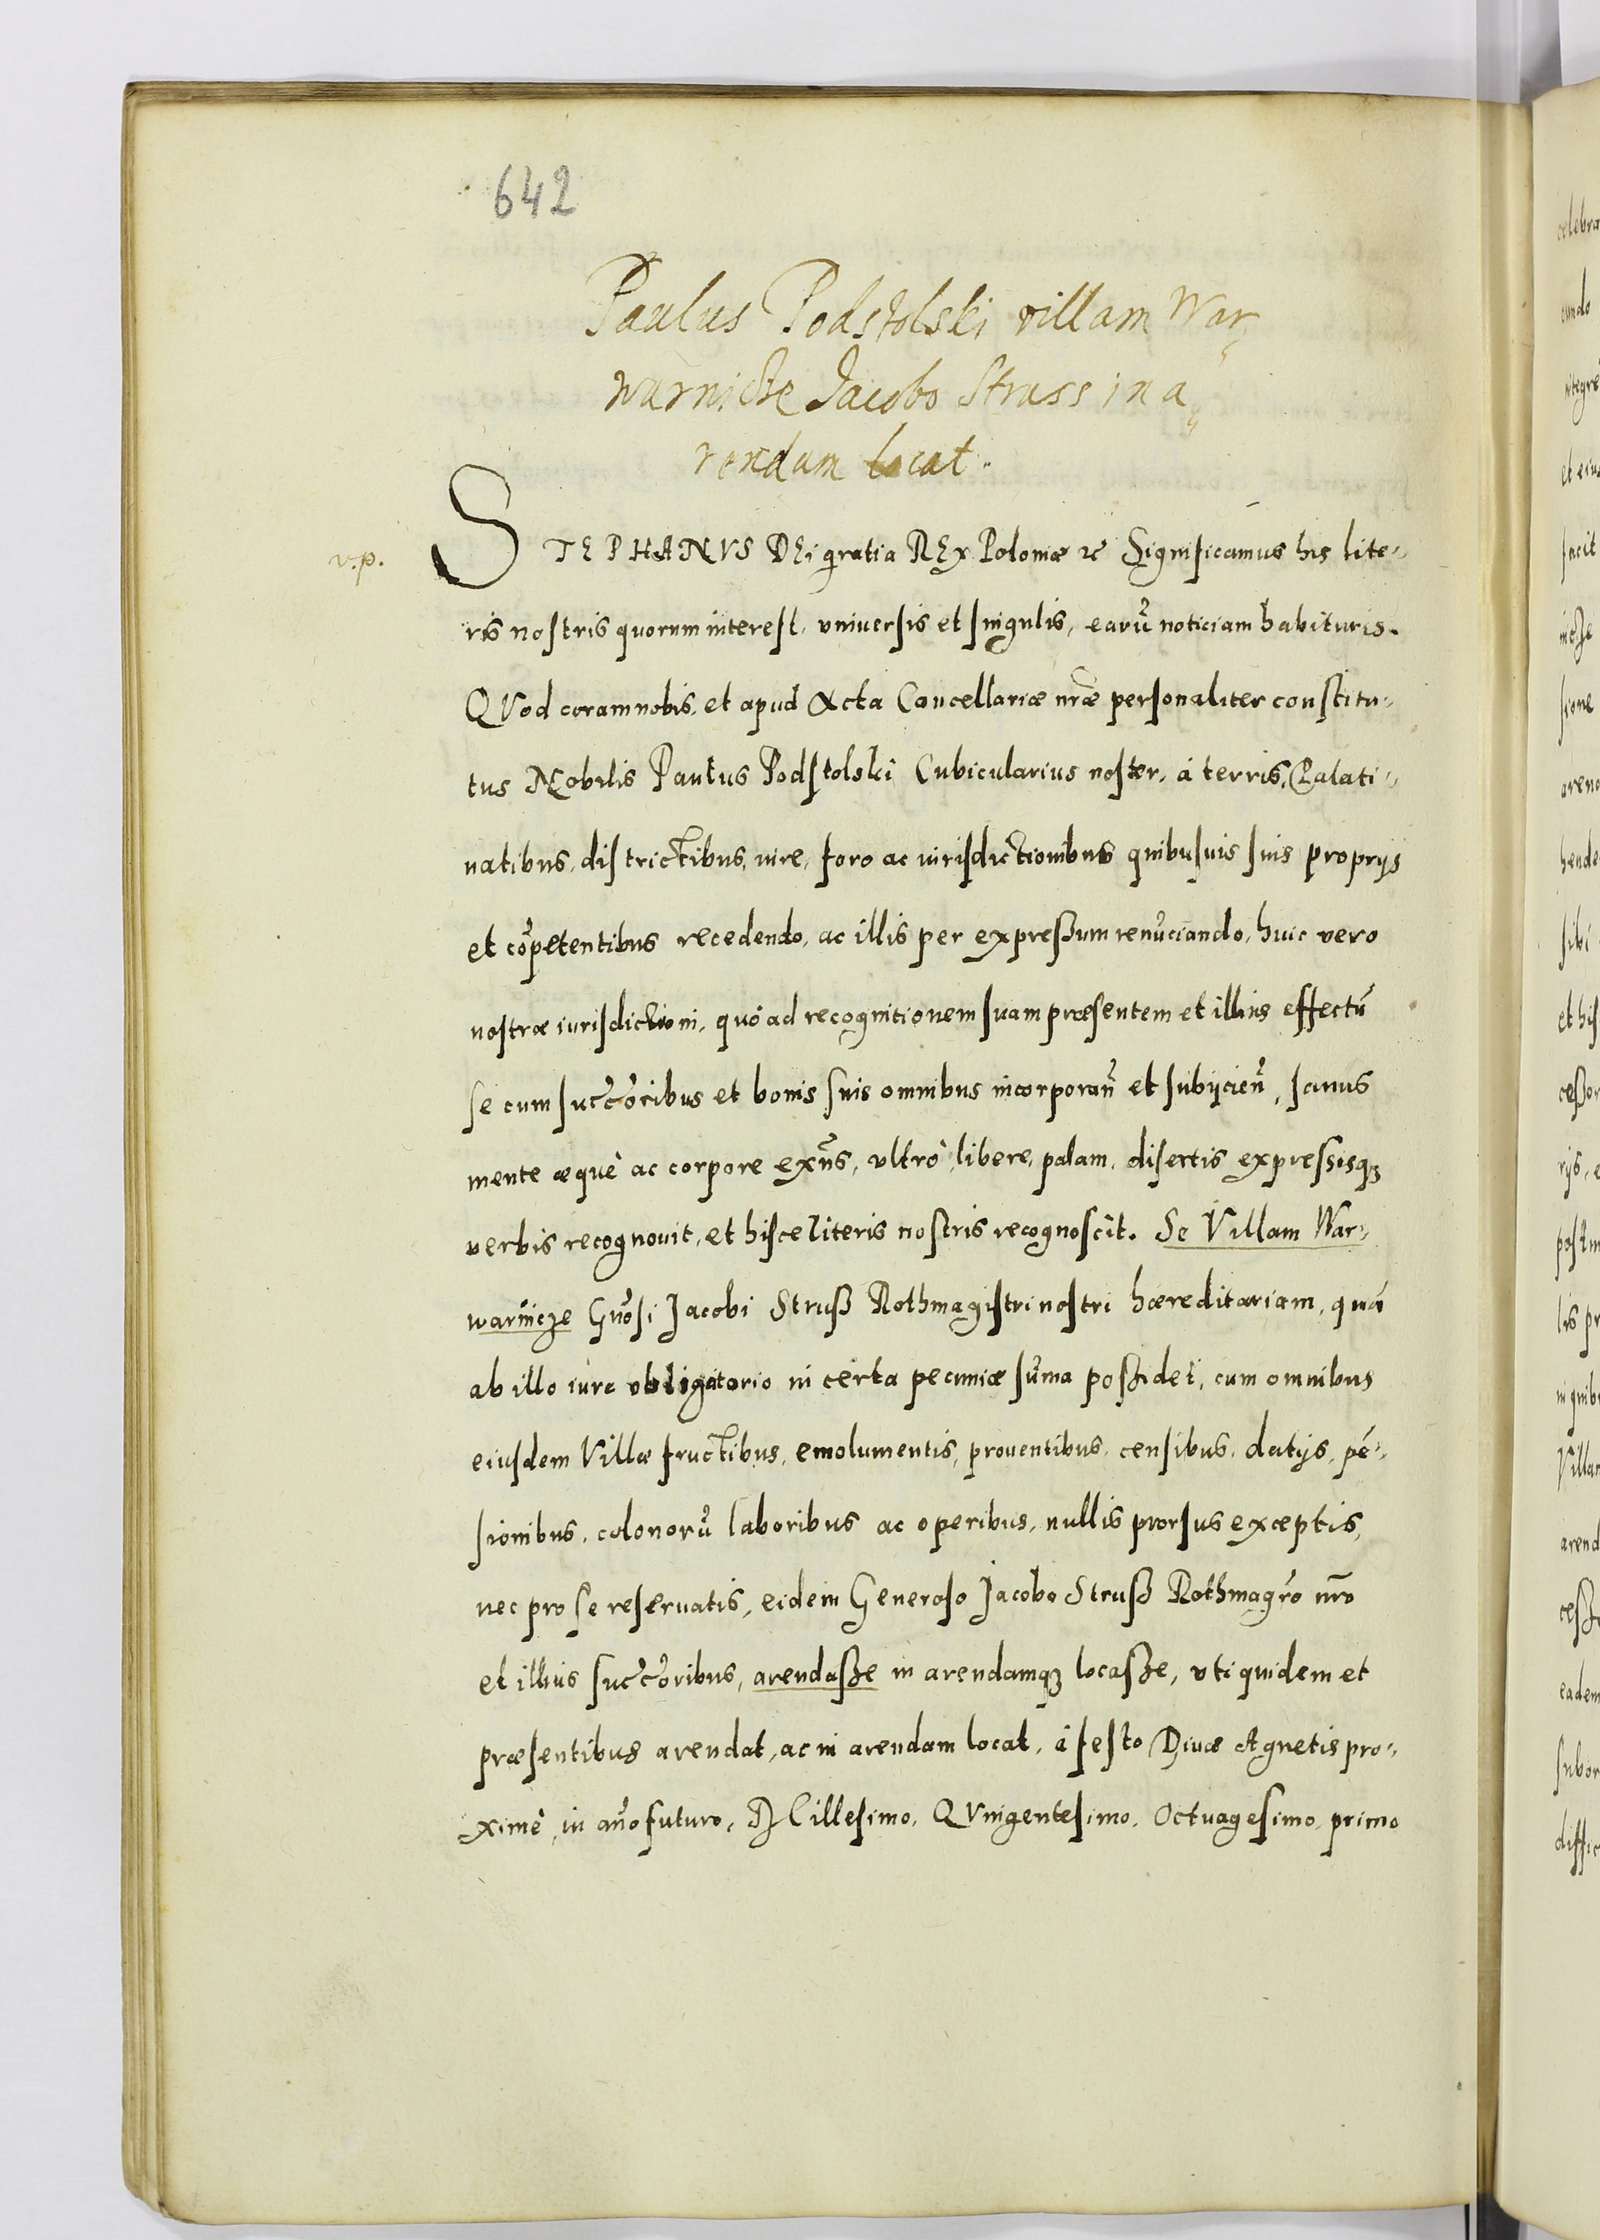 642
Paulus Podstolski villam War„
warnicze Jacobo Strass in a„
rendam locat.
v.p.
STEPHANVS DEi gratia REx Poloniæ &c Significamus his lite„
ris nostris quorum interest, vniuersis et singulis, earũ noticiam habituris.
QVod coram nobis, et apud Acta Cancellariæ nr̃æ personaliter constitu„
tus Nobilis Paulus Podstolski Cubicularius noster, à terris, Palati„
natibus, districtibus, iure, foro ac iurisdictionibus quibusuis suis proprijs
et cõpetentibus recedendo, ac illis per expreßum renũciando, huic vero
nostræ iurisdictioni, quó ad recognitionem suam præsentem et illius effectũ
se cum succ̃oribus et bonis suis omnibus incorporañ et subijcieñ, sanus
mente æquè ac corpore exñs, vltrò, libere, palam, disertis expressisqȝ
verbis recognouit, et hisce literis nostris recognoscit. Se Villam War„
warñicze Gñosi Jacobi Struß Rothmagistri nostri hæreditariam, quã
ab illo iure obligatorio in certa pecuniæ sũma poßidet, cum omnibus
eiusdem Villæ fructibus, emolumentis, prouentibus, censibus, datijs, pẽ„
sionibus, colonorũ laboribus ac operibus, nullis prorsus exceptis,
nec pro se reseruatis, eidem Generoso Jacobo Struß Rothmagr̃o nr̃o
et illius succ̃oribus, arendaße in arendamqȝ locaße, vti quidem et
præsentibus arendat, ac in arendam locat, à festo Diuæ Agnetis pro„
ximè, in año futuro, Millesimo, QVingentesimo, Octuagesimo, primo